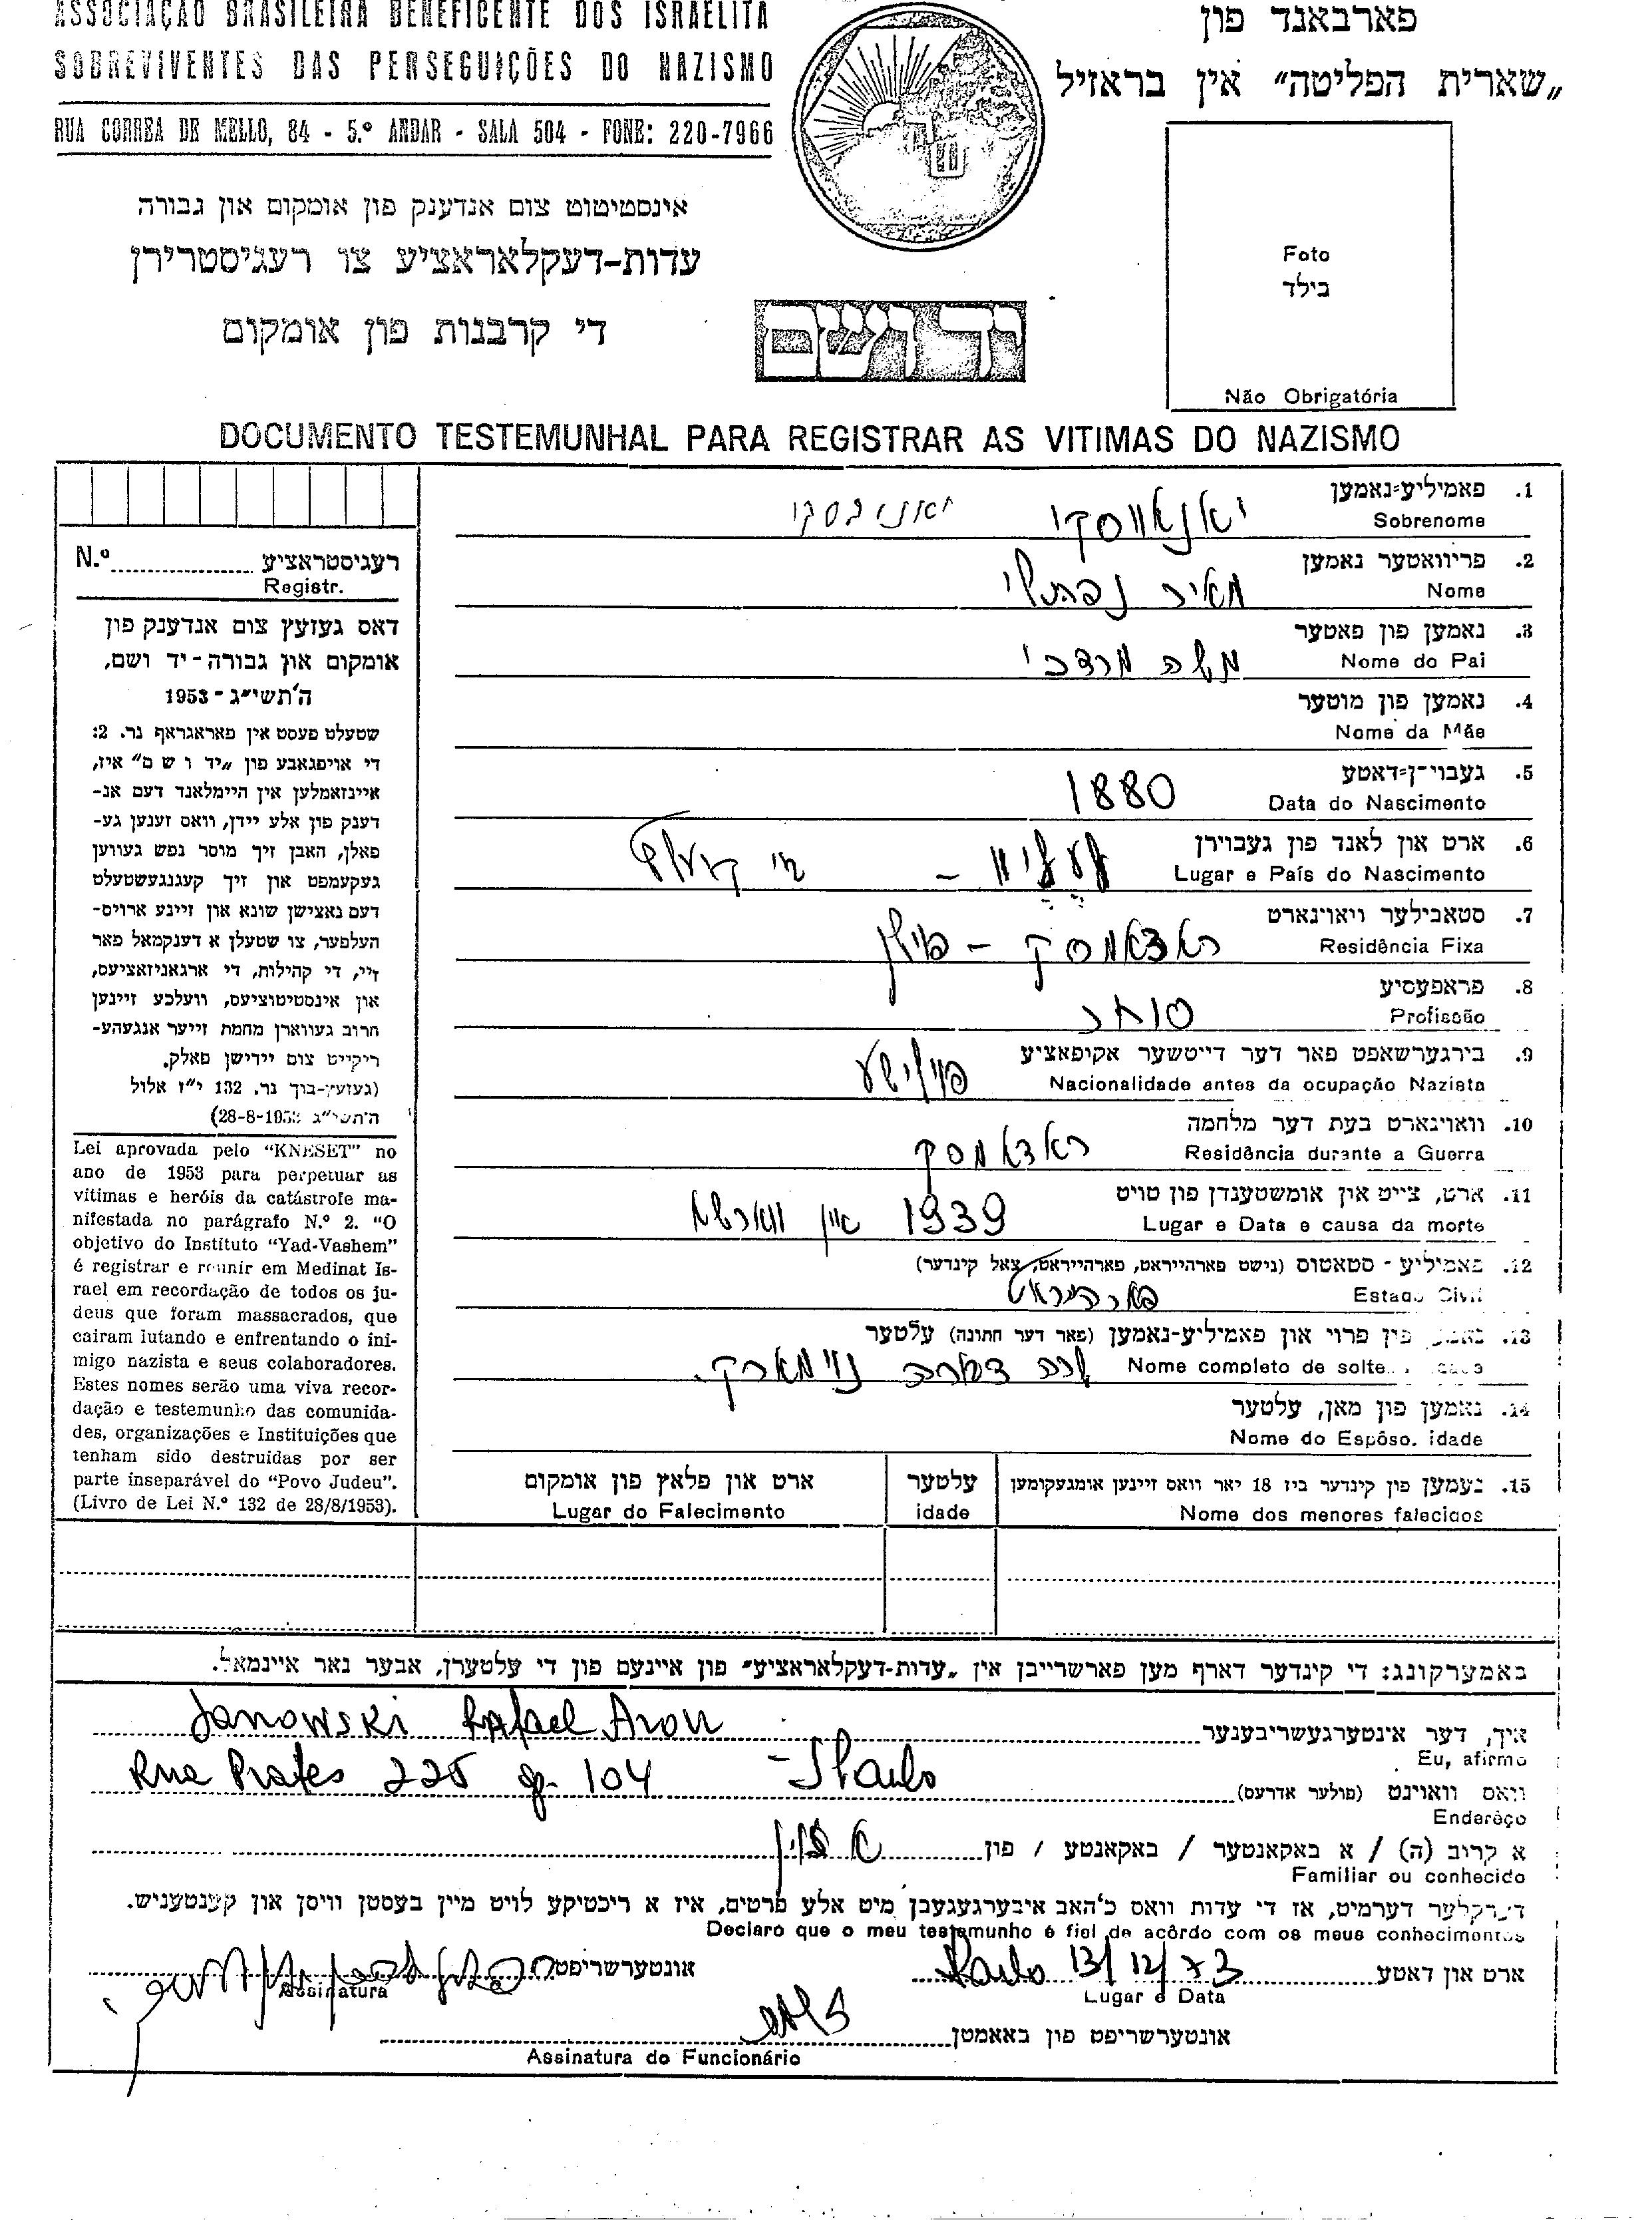 ASSOCIAÇÃO BRASILEIRA BENEFICENTE DOS ISRAELITA
SOBREVIVENTES DAS PERSEGUIÇÕES DO NAZISMO
RUA CORREA DE MELLO, 84 - 5.º ANDAR - SALA 504 - FONE: 220-7966
פארבאנד פון
„שארית הפליטה״ אין בראזיל
אינסטיטוט צום אנדענק פון אומקום און גבורה
עדות-דעקלאראציע צו רעגיסטרירן
די קרבנות פון אומקום
יד ושם
Foto
בילד
Não Obrigatória
DOCUMENTO TESTEMUNHAL PARA REGISTRAR AS VITIMAS DO NAZISMO
N.º רעגיסטראציע
Registr.
דאס געזעץ צום אנדענק פון
אומקום און גבורה-יד ושם,
ה׳תשי״ג - 1953
שטעלט פעסט אין פאראגראף נר. 2:
די אויפגאבע פון „יד ו ש ם״ איז,
איינזאמלען אין היימלאנד דעם אנ-
דענק פון אלע יידן, וואס זענען גע-
פאלן, האבן זיך מוסר נפש געווען
געקעמפט און זיך קעגנגעשטעלט
דעם נאצישן שונא און זיינע ארויס-
העלפער, צו שטעלן א דענקמאל פאר
זיי, די קהילות, די ארגאניזאציעס,
און אינסטיטוציעס, וועלכע זיינען
חרוב געווארן מחמת זייער אנגעהע-
ריקייט צום יידישן פאלק.
(געזעץ-בוך נר. 132 י״ז אלול
ה׳תשי״ג 28-8-1953)
Lei aprovada pelo “KNESET” no
ano de 1953 para perpetuar as
vitimas e heróis da catástrofe ma-
nifestada no parágrafo N.º 2. “O
objetivo do Instituto “Yad-Vashem”
é registrar e reunir em Medinat Is-
rael em recordação de todos os ju-
deus que foram massacrados, que
cairam lutando e enfrentando o ini-
migo nazista e seus colaboradores.
Estes nomes serão uma viva recor-
dação e testemunho das comunida-
des, organizações e Instituições que
tenham sido destruidas por ser
parte inseparável do “Povo Judeu”.
(Livro de Lei N.º 132 de 28/8/1953).
1. פאמיליע-נאמען יאנאווסקי יאנובסקי
Sobrenome
2. פריוואטער נאמען מאיר נפתלי
Nome
3. נאמען פון פאטער משה מרדכי
Nome do Pai
4. נאמען פון מוטער
Nome da Mãe
5. געבוירן-דאטע 1880
Data do Nascimento
6. ארט און לאנד פון געבוירן
Lugar e País do Nascimento
7. סטאבילער וואוינארט ראדאמסק - פוילן
Residência Fixa
8. פראפעסיע סוחר
Profissão
9. בירגערשאפט פאר דער דייטשער אקופאציע פוילישע
Nacionalidade antes da ocupação Nazista
10. וואוינארט בעת דער מלחמה ראדאמסק
Residência durante a Guerra
11. ארט, צייט און אומשטענדן פון טויט 1939 אין ווארשע
Lugar e Data e causa da morte
12. פאמיליע - סטאטוס (נישט פארהייראט, פארהייראט, צאל קינדער)
Estado Civil פארהייראט
13. נאמען פון פרוי און פאמיליע-נאמען (פאר דער חתונה) עלטער
Nome completo de solte נוימארק
14. נאמען פון מאן, עלטער
Nome do Espôso. idade
15. נעמען פון קינדער ביז 18 יאר וואס זיינען אומגעקומען עלטער ארט און פלאץ פון אומקום
Nome dos menores falecidos idade Lugar do Falecimento
באמערקונג: די קינדער דארף מען פארשרייבן אין „עדות-דעקלאראציע״ פון איינעם פון די עלטערן, אבער נאר איינמאל.
איך, דער אינטערגעשריבענער Janowski Rafael Aron
Eu, afirmo
וואס וואוינט (פולער אדרעס) Rua Prates 225 ap. 104 - S Paulo
Enderêço
א קרוב (ה) / א באקאנטער / באקאנטע / פון א זון
Familiar ou conhecido
דערקלער דערמיט, אז די עדות וואס כ׳האב איבערגעגעבן מיט אלע פרטים, איז א ריכטיקע לויט מיין בעסטן וויסן און קענטעניש.
Declaro que o meu testemunho é fiel de acôrdo com os meus conhecimentos
ארט און דאטע S Paulo 13/12/73 אונטערשריפט
Lugar e Data Assinatura
אונטערשריפט פון באאמטן
Assinatura do Funcionário